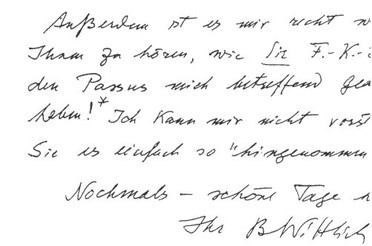 Außerdem ist es mir recht w
Ihnen zu hören, wie Sie F.-K.-
den Passus mich betreffend gea
haben!* Ich kann mir nicht vorst
Sie es einfach so "hingenommen
Nochmals – schöne Tage
Ihr B Wittlich